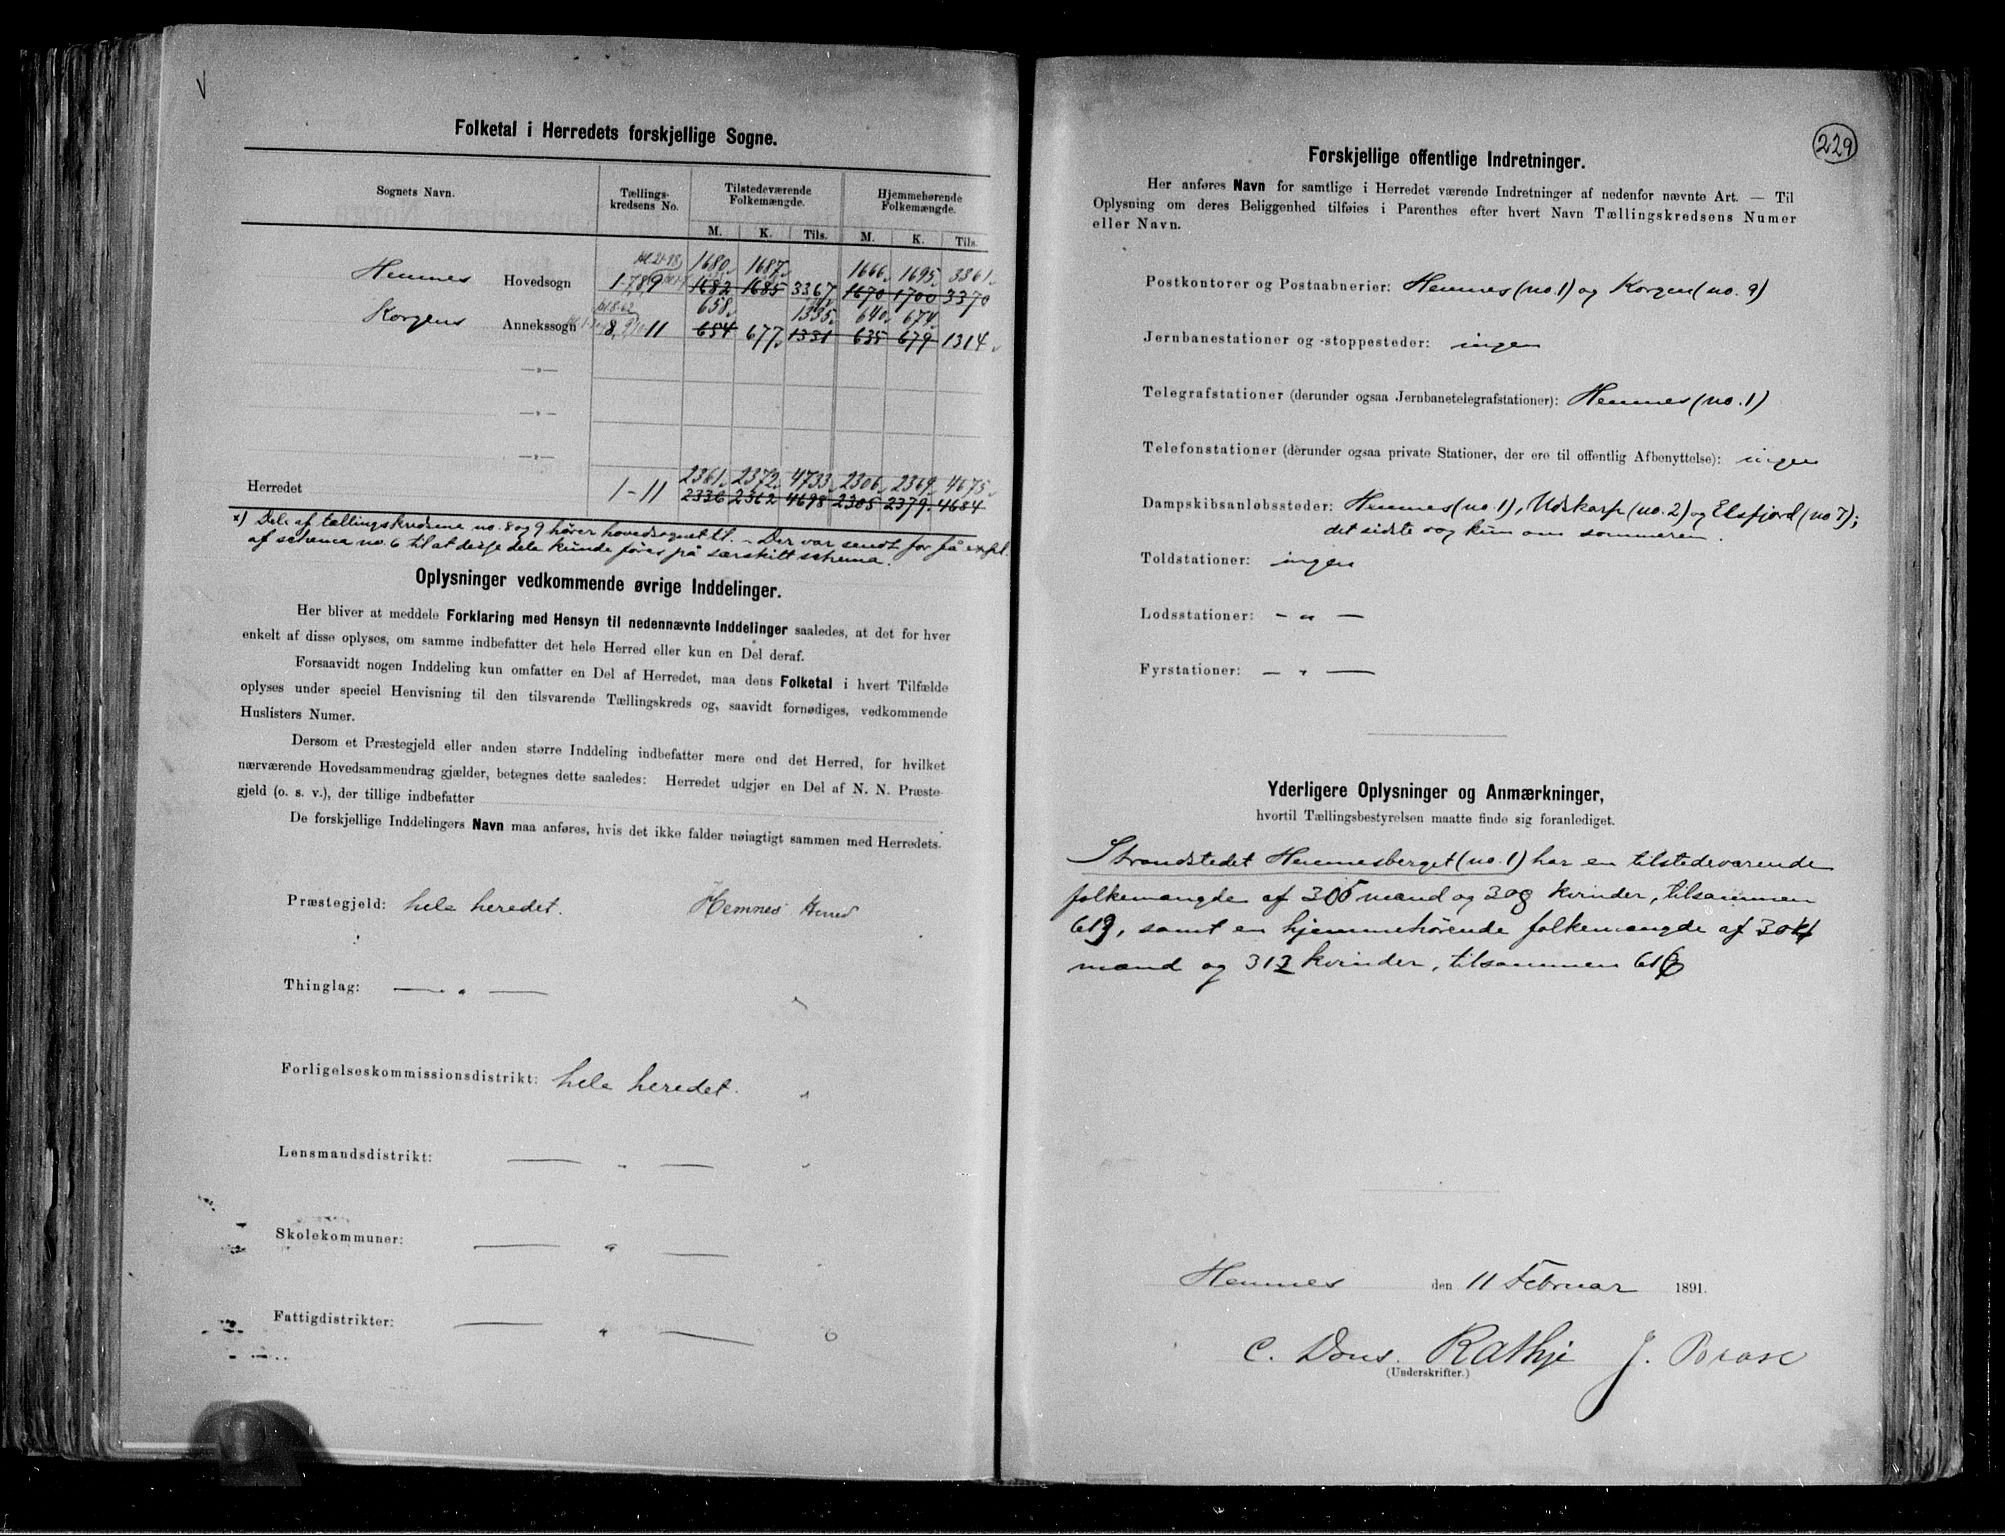 Folketal i Herredets forskjellige Sogne.
Sognets Navn. Tællings- kredsens No. Tilstedeværende Folkemængde. Hjemmehørende Folkemængde.
M. K. Tils. M. K. Tils.
1680 1687 1666 1695 3361
Hemnes Hovedsogn 1-7,8,9 1682 1685 3367 1670 1700 3370
658 1335 640 674
Korgens Annekssogn 8, 9, 11 654 677 1331 635 679 1314
—„—
—„—
—„—
2361 2372 4733 2306 2369 4675
Herredet 1-11 2336 2362 4698 2305 2379 4684
x) Dele af tællingskredsene no. 8 og 9 hører hovedsognet til. – Der var sendt for få expl.
af schema no. 6 til at disse dele kunde føres på særskilt schema.
Oplysninger vedkommende øvrige Inddelinger.
Her bliver at meddele Forklaring med Hensyn til nedennævnte Inddelinger saaledes, at det for hver
enkelt af disse oplyses, om samme indbefatter det hele Herred eller kun en Del deraf.
Forsaavidt nogen Inddeling kun omfatter en Del af Herredet, maa dens Folketal i hvert Tilfælde
oplyses under speciel Henvisning til den tilsvarende Tællingskreds og, saavidt fornødiges, vedkommende
Huslisters Numer.
Dersom et Præstegjeld eller anden større Inddeling indbefatter mere end det Herred, for hvilket
nærværende Hovedsammendrag gjælder, betegnes dette saaledes: Herredet udgjør en Del af N. N. Præste-
gjeld (o. s. v.), der tillige indbefatter
De forskjellige Inddelingers Navn maa anføres, hvis det ikke falder nøiagtigt sammen med Herredets.
Præstegjeld: hele heredet. Hemnes Herred
Thinglag: — „ —
Forligelseskommissionsdistrikt: hele heredet.
Lensmandsdistrikt: — „ —
Skolekommuner: — „ —
Fattigdistrikter: — „ —
229
Forskjellige offentlige Indretninger.
Her anføres Navn for samtlige i Herredet værende Indretninger af nedenfor nævnte Art. — Til
Oplysning om deres Beliggenhed tilføies i Parenthes efter hvert Navn Tællingskredsens Numer
eller Navn.
Postkontorer og Postaabnerier: Hemnes (no. 1) og Korgen (no. 9)
Jernbanestationer og -stoppesteder: ingen
Telegrafstationer (derunder ogsaa Jernbanetelegrafstationer): Hemnes (no. 1)
Telefonstationer (derunder ogsaa private Stationer, der ere til offentlig Afbenyttelse): ingen
Dampskibsanløbssteder: Hemnes (no. 1), Udskarp (no. 2) og Elsfjord (no 7);
det sidste dog kun om sommeren.
Toldstationer: ingen
Lodsstationer: – „ —
Fyrstationer: — „ —
Yderligere Oplysninger og Anmærkninger,
hvortil Tællingsbestyrelsen maatte finde sig foranlediget.
Strandstedet Hemnesberget (no. 1) har en tilstedeværende
folkemængde af 305 mænd og 308 kvinder, tilsammen
613, samt en hjemmehørende folkemængde af 304
mænd og 312 kvinder, tilsammen 616
Hemnes den 11 Februar 1891.
C. Dons. Rathje J. Brase
(Underskrifter.)